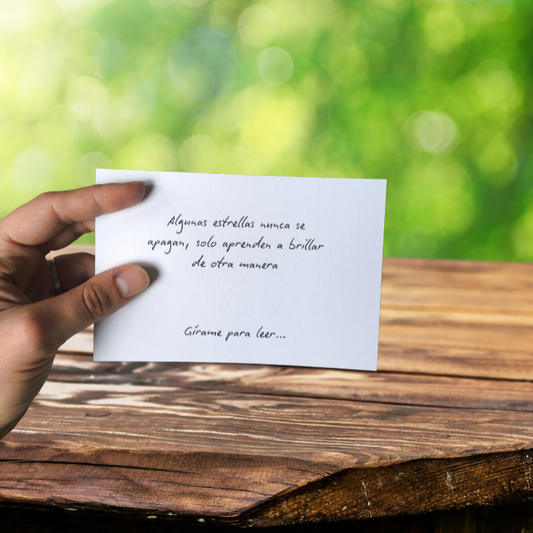 Algunas estrellas nunca se
apagan, solo aprenden a brillar
de otra manera
Gírame para leer...